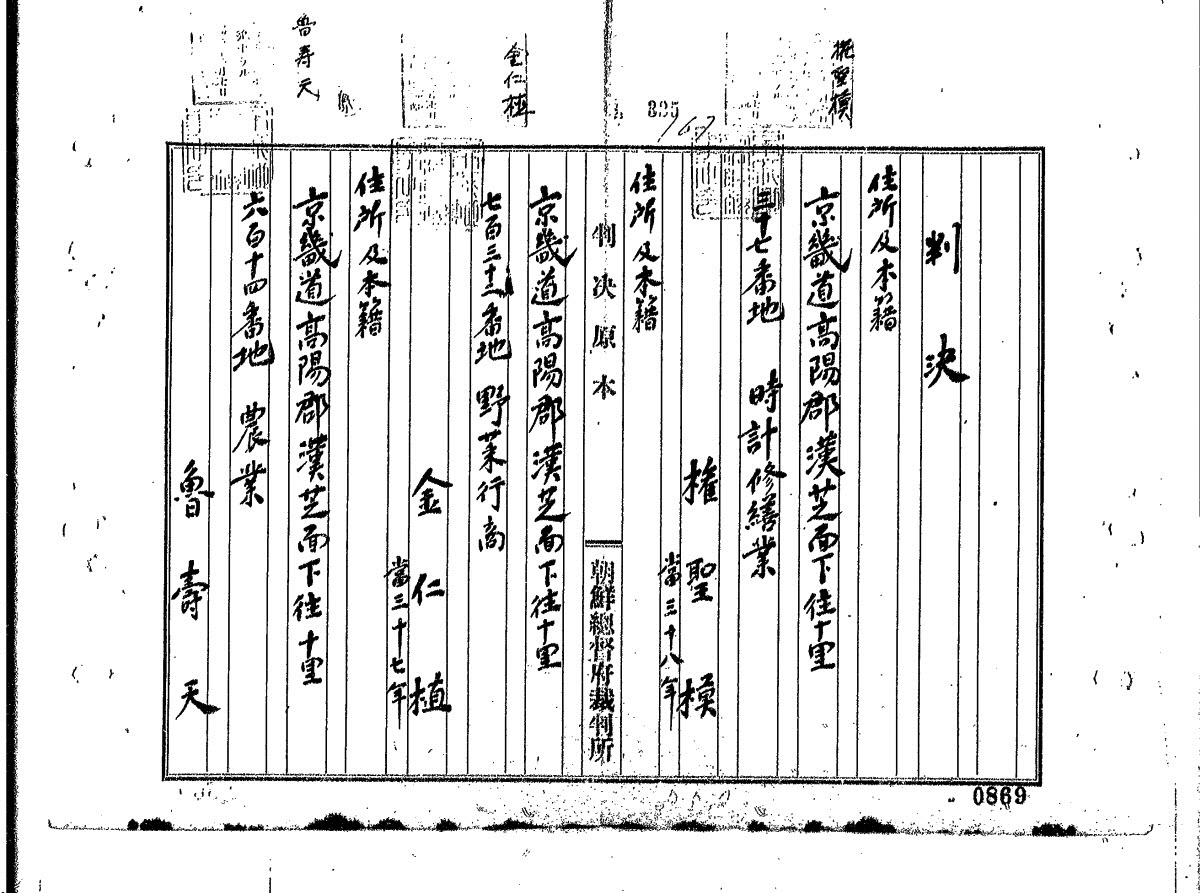 判決
住所及本籍
京畿道高陽郡漢芝面下往十里
三十七番地 時計修繕業
權聖模
當三十八年
住所及本籍
判決原本
朝鮮總督府裁判所
京畿道高陽郡漢芝面下往十里
七百三十二番地 野菜行商
金仁植
當三十七年
住所及本籍
京畿道高陽郡漢芝面下往十里
六百十四番地 農業
魯壽天
權聖模
金仁植
魯寿天
895
167
0869